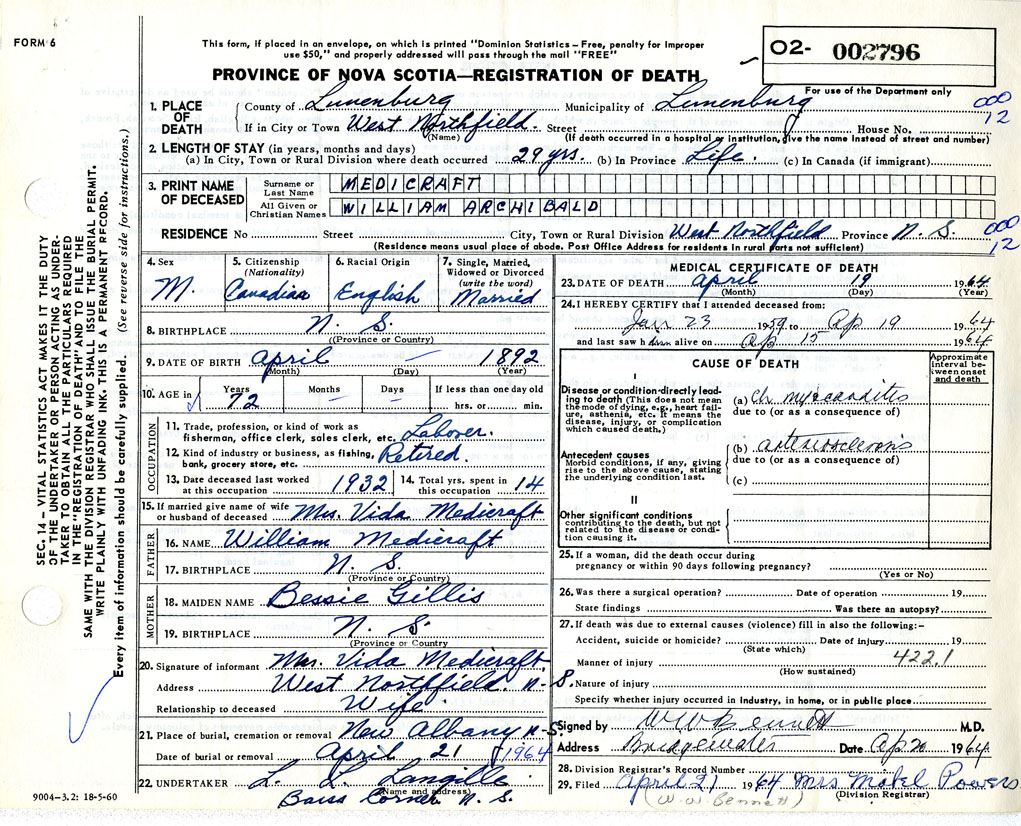 FORM 6
This form, if placed in an envelope, on which is printed "Dominion Statistics – Free, penalty for improper
use $50," and properly addressed will pass through the mail "FREE"
PROVINCE OF NOVA SCOTIA—REGISTRATION OF DEATH
O2- 002796
For use of the Department only
SEC. 14 – VITAL STATISTICS ACT MAKES IT THE DUTY
OF THE UNDERTAKER OR PERSON ACTING AS UNDER-
TAKER TO OBTAIN ALL THE PARTICULARS REQUIRED
IN THE "REGISTRATION OF DEATH" AND TO FILE THE
SAME WITH THE DIVISION REGISTRAR WHO SHALL ISSUE THE BURIAL PERMIT.
WRITE PLAINLY WITH UNFADING INK. THIS IS A PERMANENT RECORD.
Every item of information should be carefully supplied. (See reverse side for instructions.)
1. PLACE OF DEATH
County of Lunenburg Municipality of Lunenburg
000
12
If in City or Town West Northfield. Street House No.
(Name) (If death occurred in a hospital or institution, give the name instead of street and number)
2. LENGTH OF STAY (in years, months and days)
(a) In City, Town or Rural Division where death occurred 29 yrs. (b) In Province Life. (c) In Canada (if immigrant)
3. PRINT NAME OF DECEASED
Surname or Last Name MEDICRAFT
All Given or Christian Names WILLIAM ARCHIBALD
RESIDENCE No Street City, Town or Rural Division West Northfield Province N. S.
000
12
(Residence means usual place of abode. Post Office Address for residents in rural parts not sufficient)
4. Sex M.
5. Citizenship (Nationality) Canadian
6. Racial Origin English
7. Single, Married, Widowed or Divorced (write the word) Married
8. BIRTHPLACE N. S.
(Province or Country)
9. DATE OF BIRTH April — 1892
(Month) (Day) (Year)
10. AGE in Years 72 Months – Days – If less than one day old hrs. or min.
OCCUPATION
11. Trade, profession, or kind of work as
fisherman, office clerk, sales clerk, etc. Laborer.
12. Kind of industry or business, as fishing,
bank, grocery store, etc. Retired.
13. Date deceased last worked
at this occupation 1932
14. Total yrs. spent in
this occupation 14
15. If married give name of wife
or husband of deceased Mrs. Vida Medicraft
FATHER
16. NAME William Medicraft
17. BIRTHPLACE N. S.
(Province or Country)
MOTHER
18. MAIDEN NAME Bessie Gillis
19. BIRTHPLACE N. S.
(Province or Country)
20. Signature of informant Mrs. Vida Medicraft,
Address West Northfield. N-S.
Relationship to deceased Wife.
21. Place of burial, cremation or removal New Albany N-S.
Date of burial or removal April 21 1964
22. UNDERTAKER L. L. Langille
(Name and address)
Barss Corner N. S.
9004–3.2: 18-5-60
MEDICAL CERTIFICATE OF DEATH
23. DATE OF DEATH April 19 1964
(Month) (Day) (Year)
24. I HEREBY CERTIFY that I attended deceased from:
Jan 23 1959 to Ap 19 1964
and last saw him alive on Ap 15 1964
CAUSE OF DEATH
Approximate interval between onset and death
I
Disease or condition directly lead-
ing to death (This does not mean
the mode of dying, e.g., heart fail-
ure, asthenia, etc. It means the
disease, injury, or complication
which caused death.)
(a) Ch myocarditis
due to (or as a consequence of)
Antecedent causes
Morbid conditions, if any, giving
rise to the above cause, stating
the underlying condition last.
(b) arteriosclerosis
due to (or as a consequence of)
(c)
II
Other significant conditions
contributing to the death, but not
related to the disease or condi-
tion causing it.
25. If a woman, did the death occur during
pregnancy or within 90 days following pregnancy?
(Yes or No)
26. Was there a surgical operation? Date of operation 19
State findings Was there an autopsy?
27. If death was due to external causes (violence) fill in also the following:–
Accident, suicide or homicide? Date of injury 19
(State which)
Manner of injury 422.1
(How sustained)
Nature of injury
Specify whether injury occurred in industry, in home, or in public place
Signed by W W Bennett M.D.
Address Bridgewater Date Ap 20 1964
28. Division Registrar's Record Number
29. Filed April 21 1964 Mrs Powers
(W. W. Bennett) (Division Registrar)